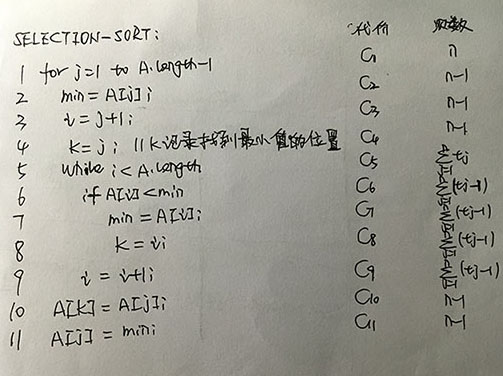 SELECTION-SORT: 代价 次数
1 for j=1 to A.length-1 C1 n
2 min=A[j]; C2 n-1
3 i=j+1; C3 n-1
4 k=j; //k记录找到最小值的位置 C4 n-1
5 while i<A.length C5 tj
6 if A[i]<min C6 (tj-1)
7 min=A[i]; C7 (tj-1)
8 k=i; C8 (tj-1)
9 i=i+1; C9 (tj-1)
10 A[k]=A[j]; C10 n-1
11 A[j]=min; C11 n-1